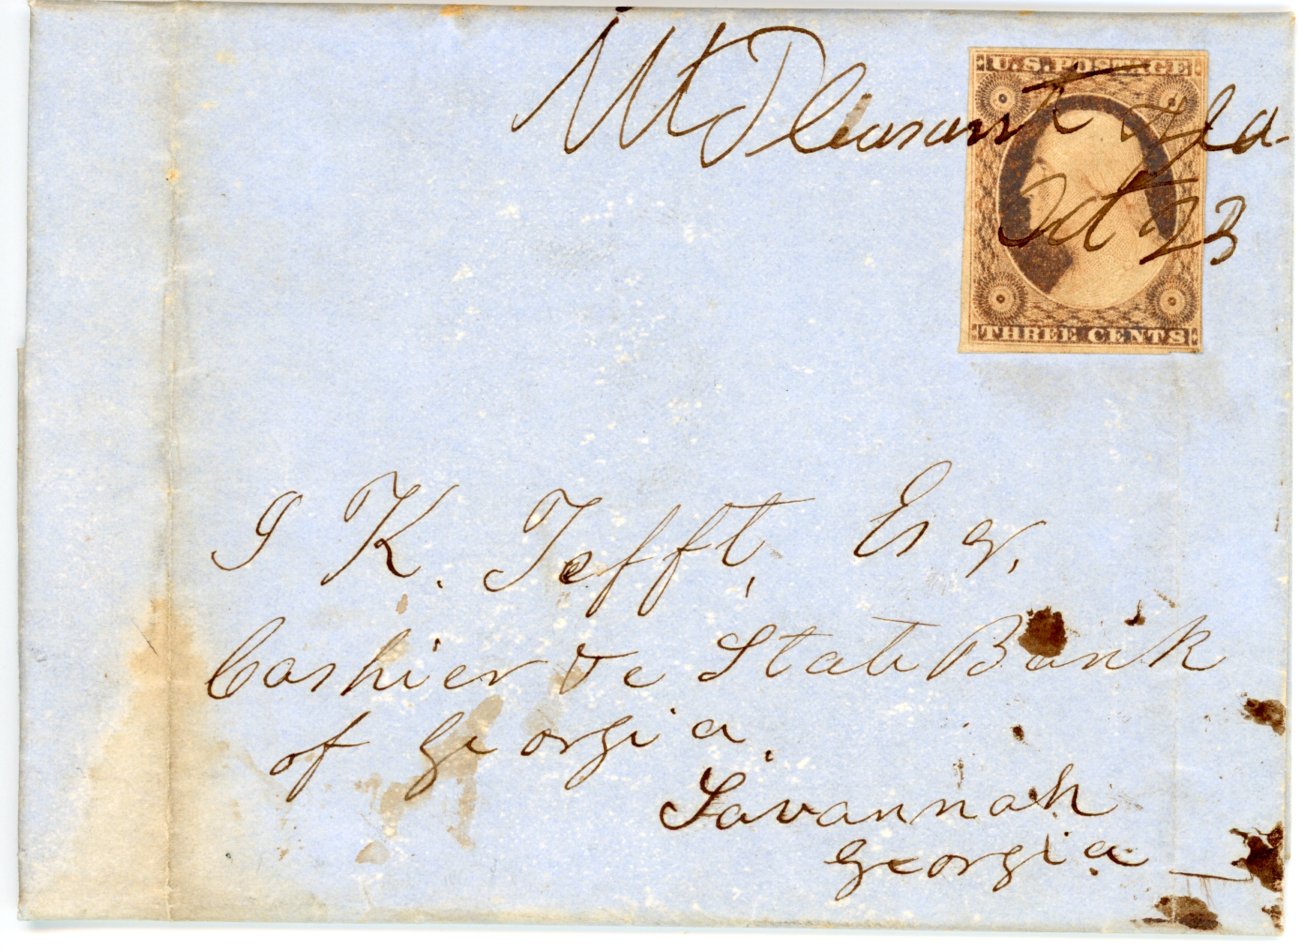 Mt Pleasant Fla
Oct 23
U.S. POSTAGE
THREE CENTS
I K. Tefft, Esqr,
Cashier &c State Bank
of Georgia,
Savannah
Georgia